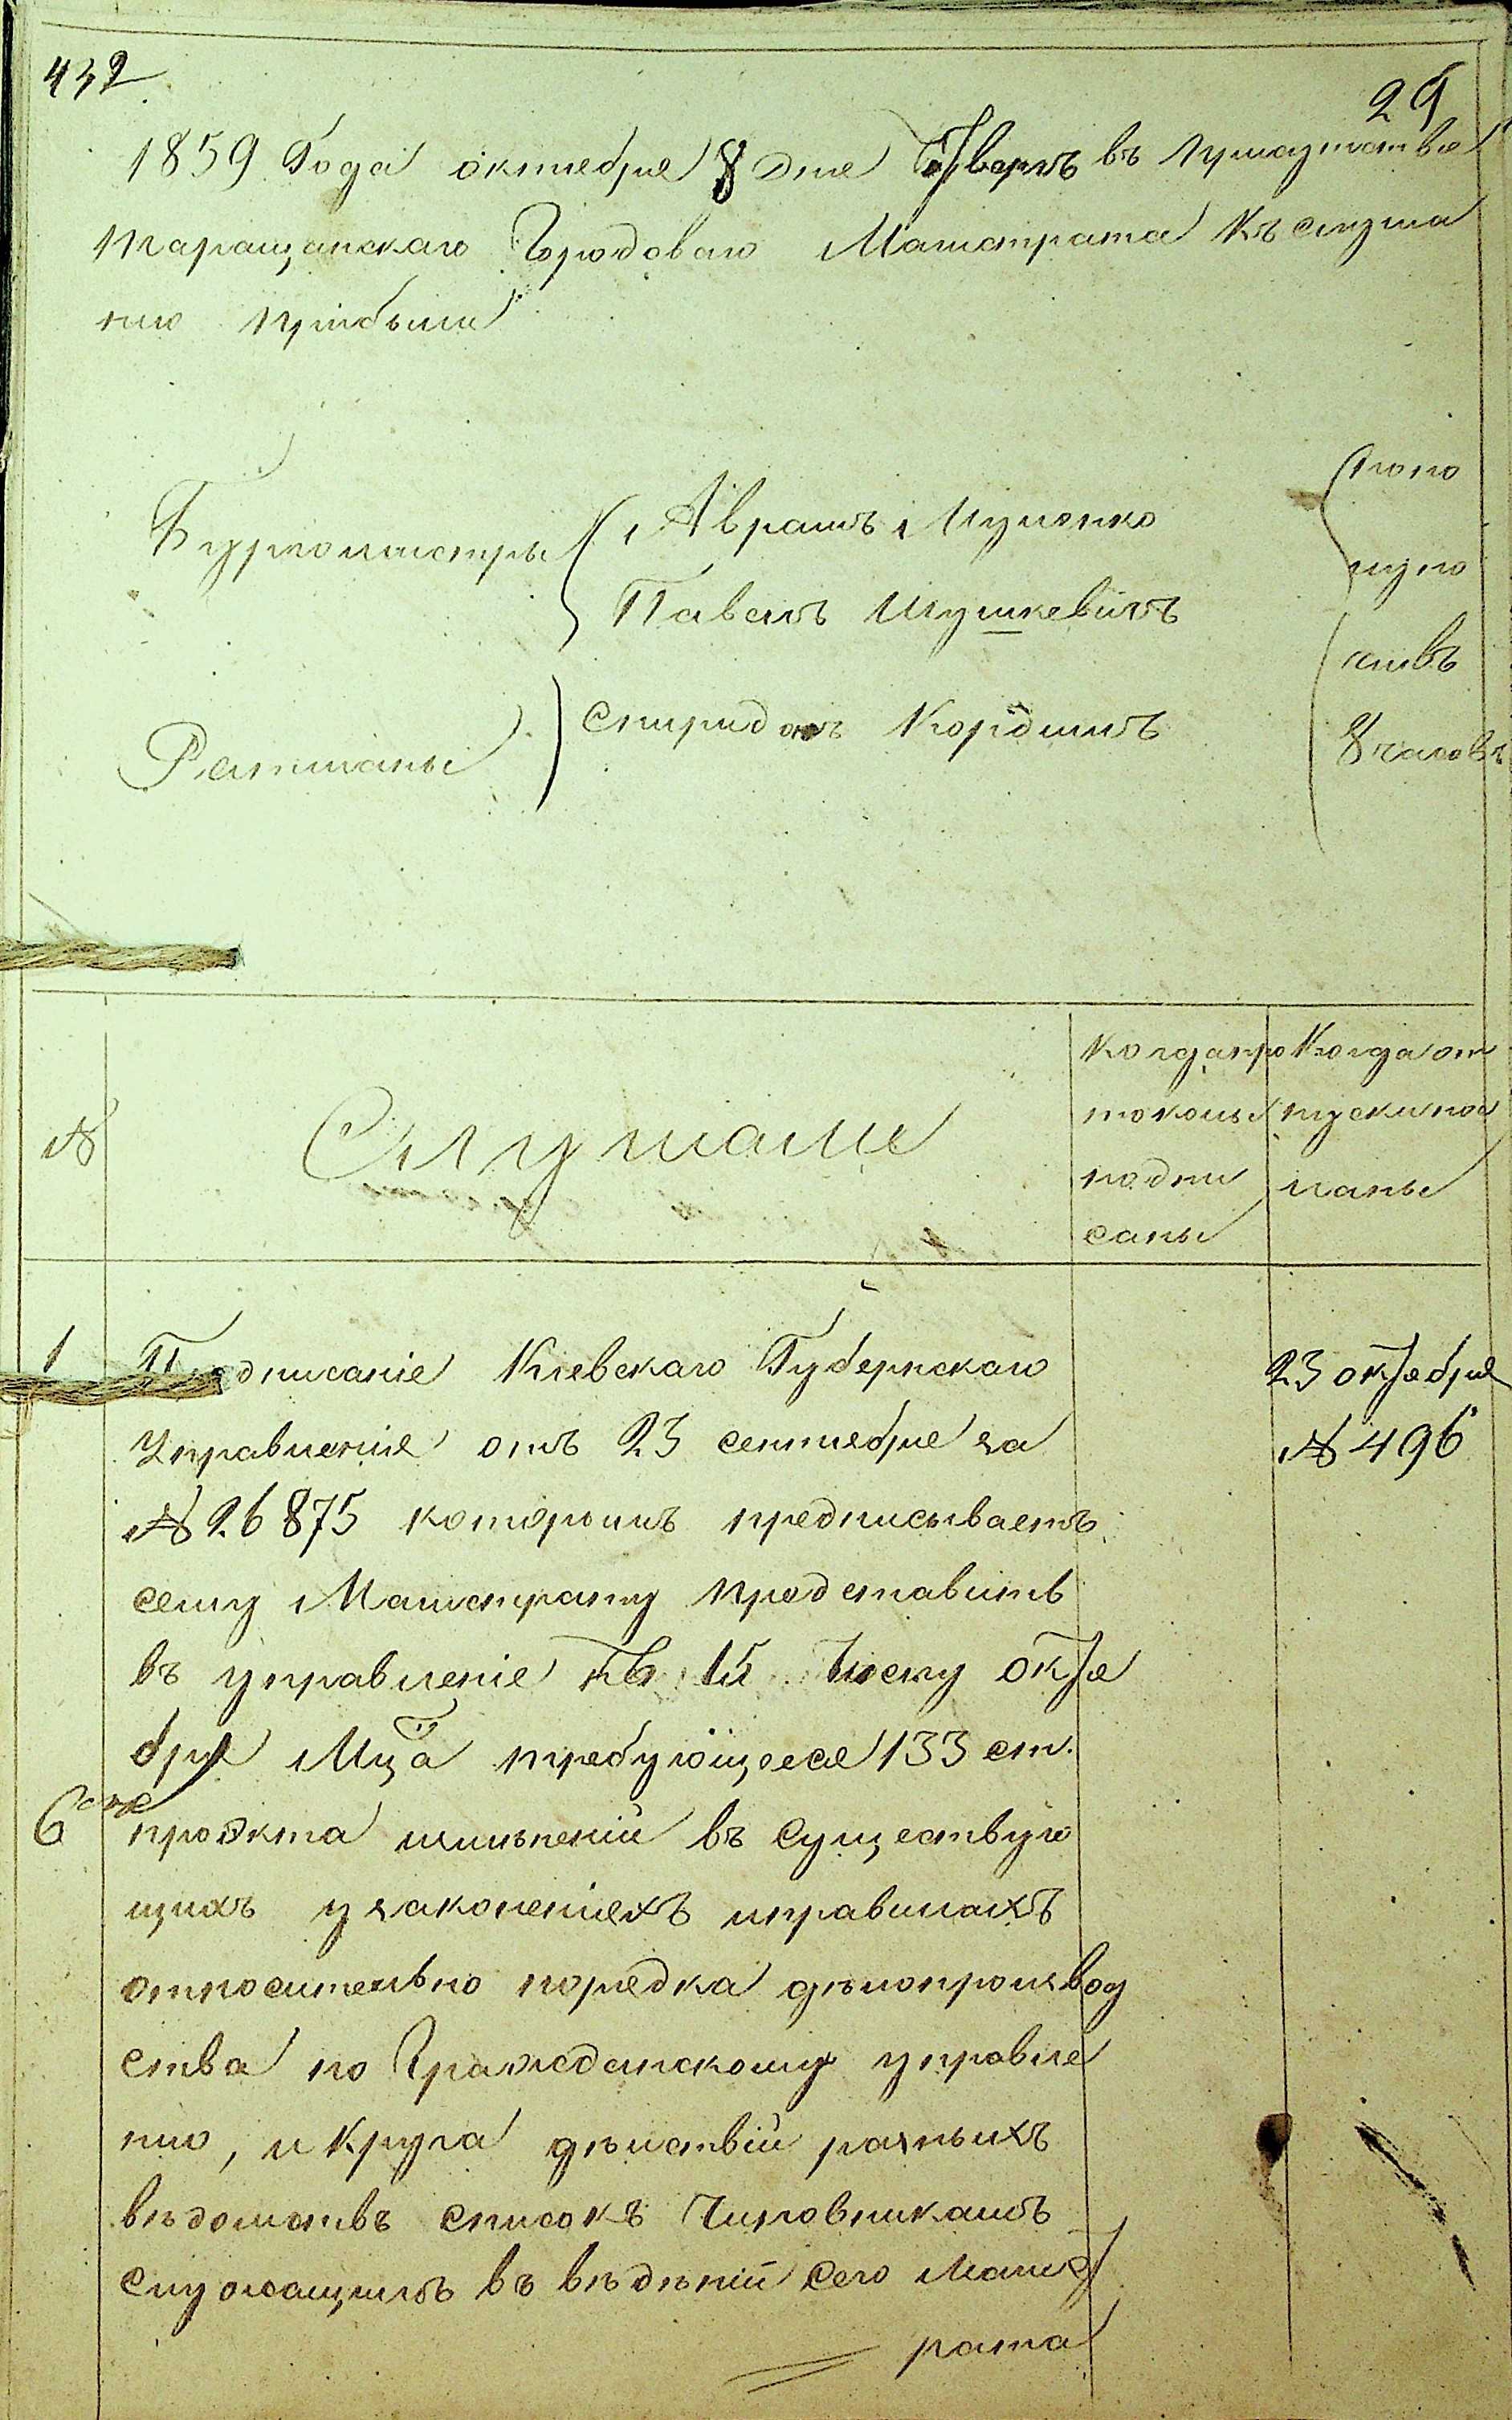 432
29
1859 Года октября 8 дня Четвергъ въ присутствіе
Таращанскаго Городоваго Магистрата къ слуша
нію прибыли
Бургомистры
Аврамъ
Павелъ Шушкевичъ
Ратманы
Спиридонъ
по по
лудно
8 часовъ
№
Слушали
Когда про
токолы
подпи
саны
Когда от
пуски под
саны
1
Предписаніе Кіевскаго Губернскаго
Управленія отъ 23 сентября за
№ 26875 которымъ предписываетъ
сему Магистрату представить
въ управленіе къ 15 числу октя
бря Мца требующееся 133 ст.
проэкта измѣненій въ существую
щихъ узаконеніяхъ и правилахъ
относительно порядка дѣлопроизвод
ства по Гражданскому управле
нію, и круга дѣйствій разныхъ
вѣдомствъ списокъ Чиновникамъ
служащимъ въ вѣдѣніи сего Магист
рата
23 октября
№ 496
6